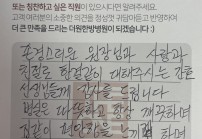 또는 칭찬하고 싶은 직원이 있으시다면 알려주세요.
고객 여러분의 소중한 의견을 정성껏 귀담아듣고 반영하여
더 큰 만족을 드리는 더원한방병원이 되겠습니다 :)
존경스러운 원장님과 사랑과
친절로 한결같이 대해주시는 간호
선생님들께 감사를 드립니다
병실은 따뜻하고 항상 깨끗하며
집같이 편안함을 느끼게 하며